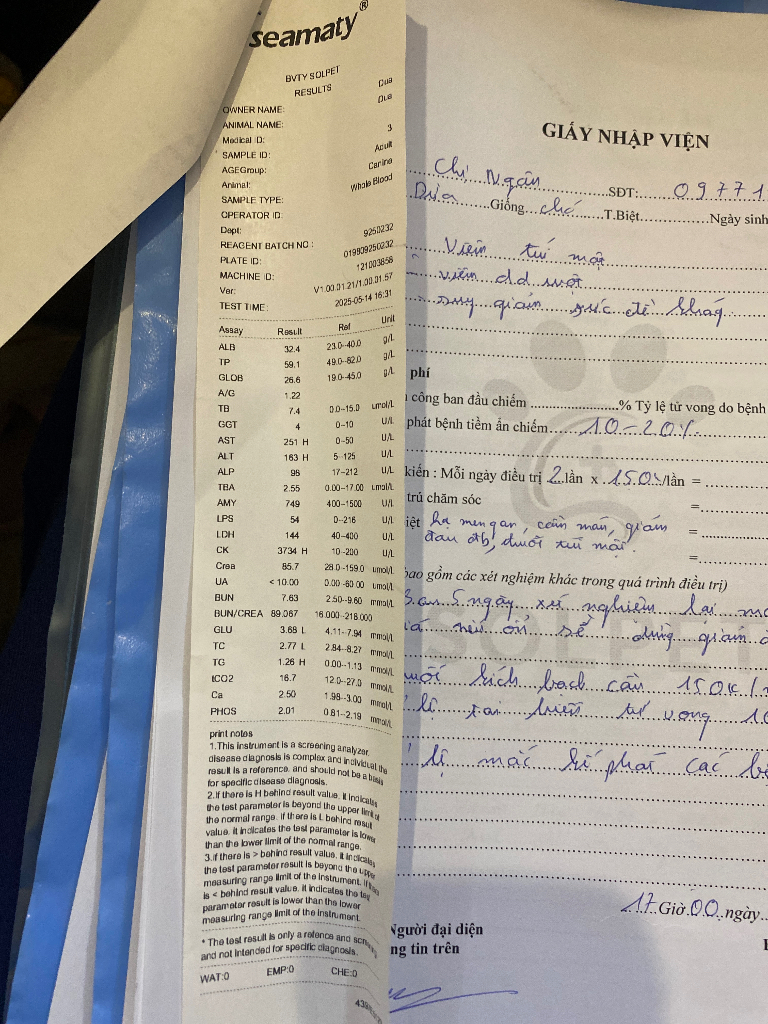 seamaty®
BVTY SOLPET
RESULTS
OWNER NAME: Dua
ANIMAL NAME: Dua
Medical ID:
SAMPLE ID: 3
AGEGroup: Adult
Animal: Canine
SAMPLE TYPE: Whole Blood
OPERATOR ID:
Dept:
REAGENT BATCH NO: 9250232
PLATE ID: 019909250232
MACHINE ID: 121003858
Ver: V1.00.01.21/1.00.01.57
TEST TIME: 2025-05-14 16:31
Assay Result Ref Unit
ALB 32.4 23.0--40.0 g/L
TP 59.1 49.0--82.0 g/L
GLOB 26.6 19.0--45.0 g/L
A/G 1.22
TB 7.4 0.0--15.0 umol/L
GGT 4 0--10 U/L
AST 251 H 0--50 U/L
ALT 163 H 5--125 U/L
ALP 98 17--212 U/L
TBA 2.55 0.00--17.00 umol/L
AMY 749 400--1500 U/L
LPS 54 0--216 U/L
LDH 144 40--400 U/L
CK 3734 H 10--200 U/L
Crea 85.7 28.0--159.0 umol/L
UA < 10.00 0.00--60.00 umol/L
BUN 7.63 2.50--9.60 mmol/L
BUN/CREA 89.067 16.000--218.000
GLU 3.68 L 4.11--7.94 mmol/L
TC 2.77 L 2.84--8.27 mmol/L
TG 1.26 H 0.00--1.13 mmol/L
tCO2 16.7 12.0--27.0 mmol/L
Ca 2.50 1.98--3.00 mmol/L
PHOS 2.01 0.81--2.19 mmol/L
print notes
1.This instrument is a screening analyzer,
disease diagnosis is complex and individual, the
result is a reference, and should not be a basis
for specific disease diagnosis.
2.If there is H behind result value, it indicates
the test parameter is beyond the upper limit of
the normal range. If there is L behind result
value, it indicates the test parameter is lower
than the lower limit of the normal range.
3.if there is > behind result value, it indicates
the test parameter result is beyond the upper
measuring range limit of the instrument. If there
is < behind result value, it indicates the test
parameter result is lower than the lower
measuring range limit of the instrument.
* The test result is only a refence and screening
and not intended for specific diagnosis.
WAT:0 EMP:0 CHE:0
GIẤY NHẬP VIỆN
Chị Ngân SĐT: 09771
Dứa Giống chó T.Biệt Ngày sinh
Viêm túi mật
viêm dd ruột
suy giảm sức đề kháng
phí
công ban đầu chiếm % Tỷ lệ tử vong do bệnh
phát bệnh tiềm ẩn chiếm 10-20%
kiến : Mỗi ngày điều trị 2 lần x 150k/lần =
trú chăm sóc =
iệt hạ men gan, cầm máu, giảm =
đau đb, dưới túi mật. =
bao gồm các xét nghiệm khác trong quá trình điều trị)
3 an 5 ngày xét nghiệm lại
nếu ổn sẽ dùng giảm
kích bạch cầu 150k/
lệ tai biến tử vong
lệ mắc kế phát các
17 Giờ 00 ngày
Người đại diện
ng tin trên